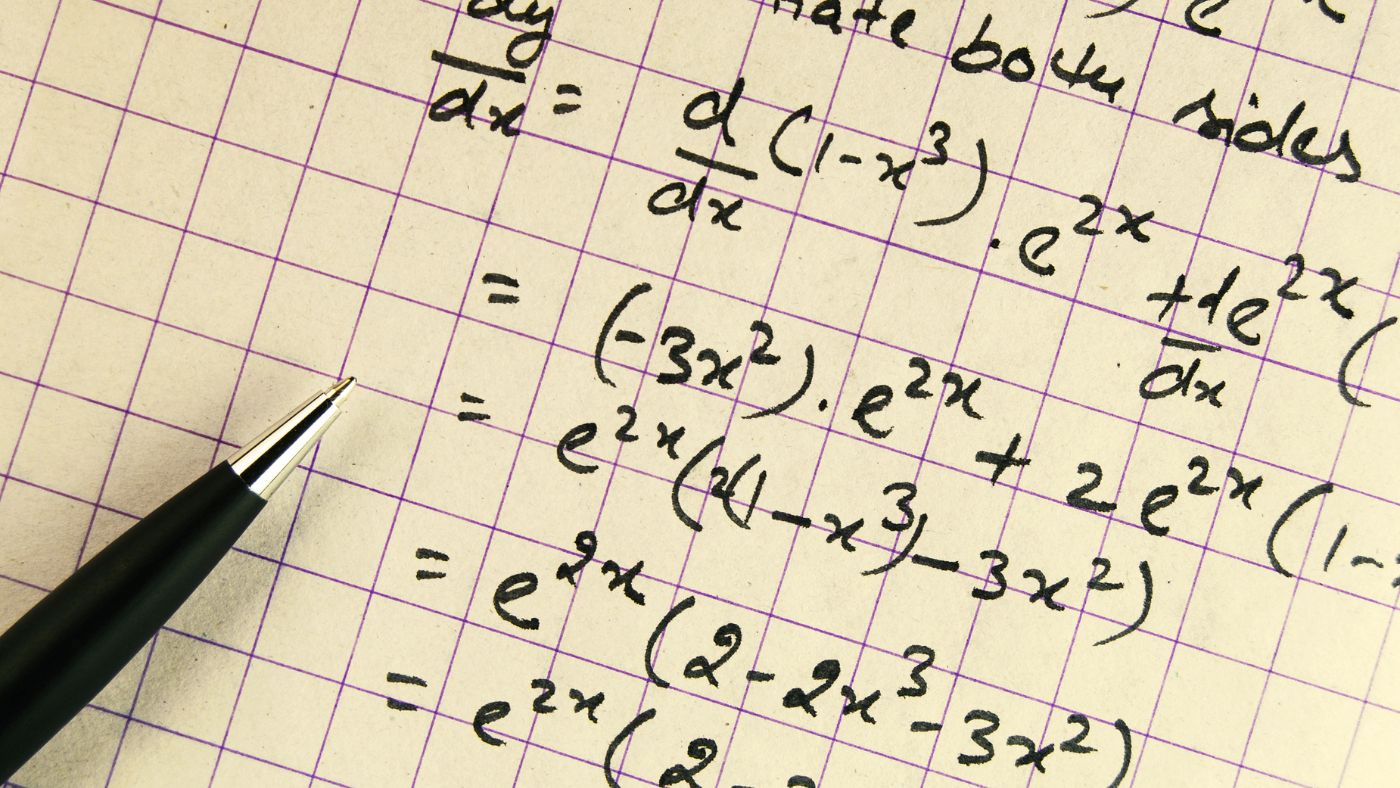 both sides
dy/dx = d/dx (1-x³) . e²ˣ + de²ˣ/dx (
= (-3x²) . e²ˣ + 2e²ˣ (1-
= e²ˣ(2(1-x³)-3x²)
= e²ˣ(2-2x³-3x²)
= e²ˣ(2-